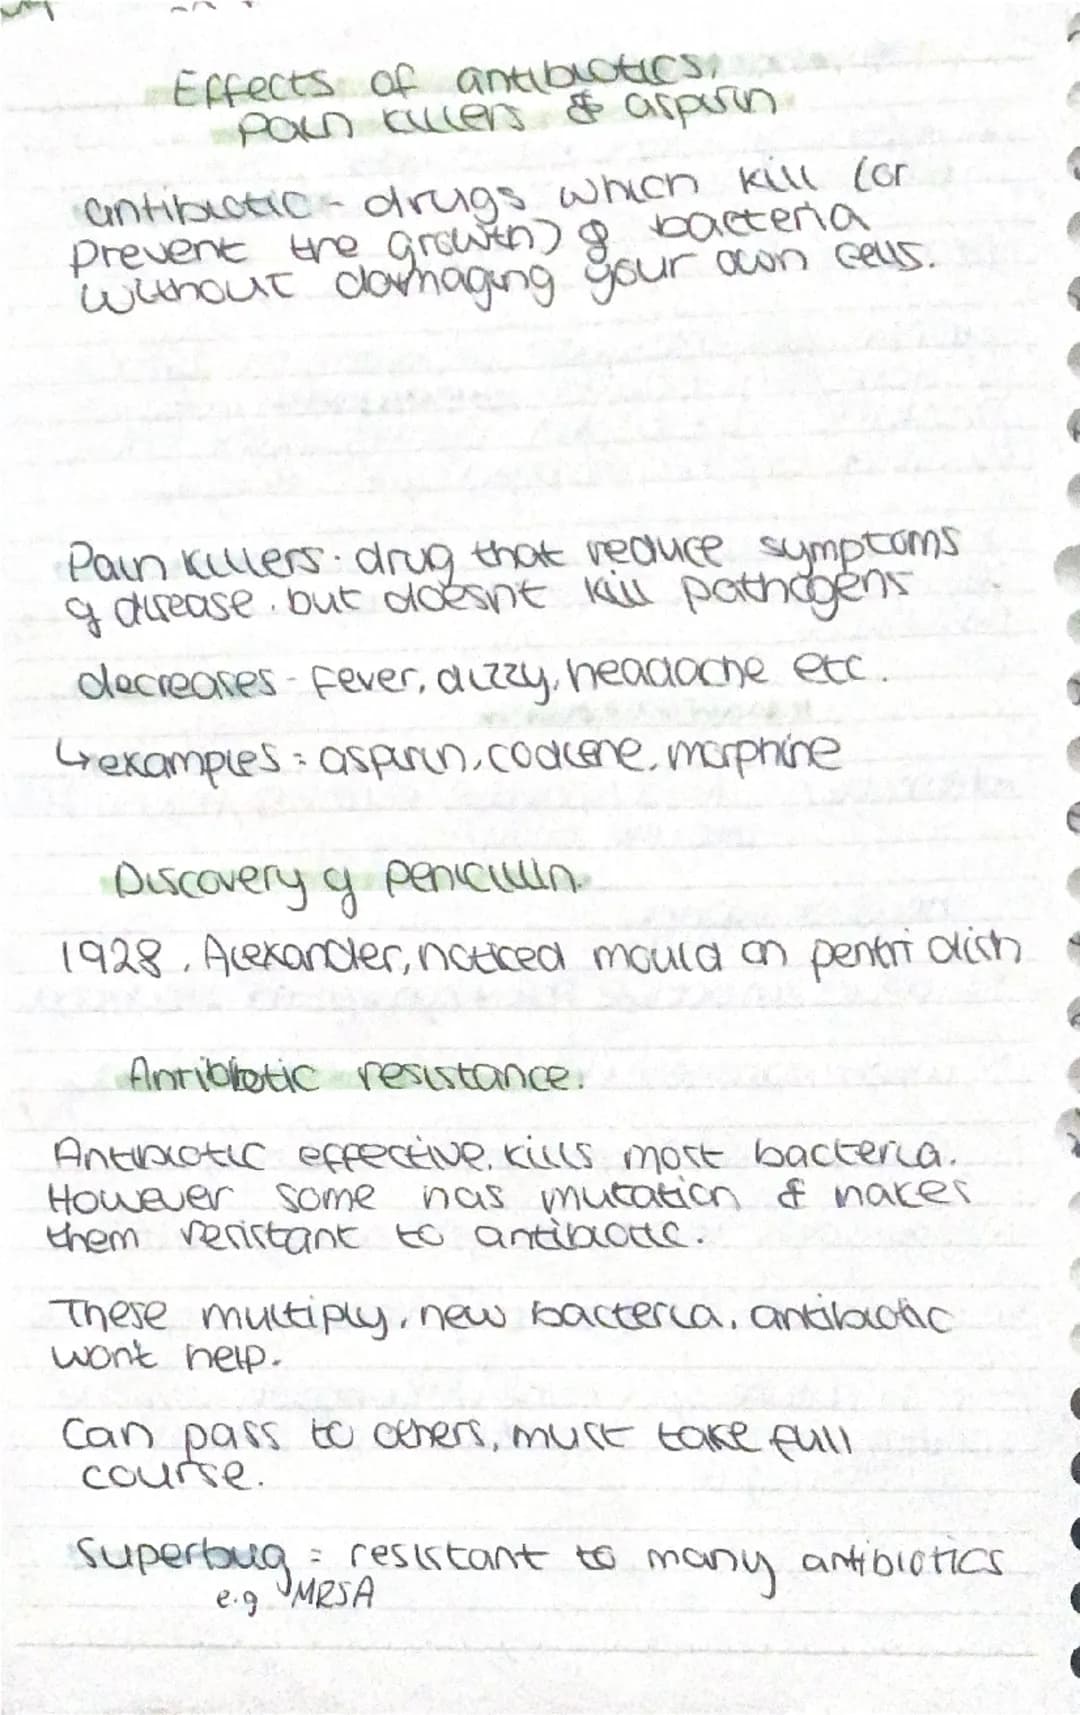 Effects of antibiotics,
Pain killers & aspirin
antibiotic - drugs which kill (or
prevent the growth) of bacteria
without damaging your own cells.
Pain killers. drug that reduce symptoms
of disease. but doesnt kill pathogens
decreases - fever, dizzy, headache etc.
↳examples = aspirin, codiene, morphine
Discovery of penicillin.
1928, Alexander, noticed mould on pentri dish
Antibiotic resistance.
Antibiotic effective, kills most bacteria.
However some has mutation & makes
them resistant to antibiotic.
These multiply, new bacteria, antibiotic
wont help.
Can pass to others, must take full
course.
Superbug = resistant to many antibiotics
e.g MRSA